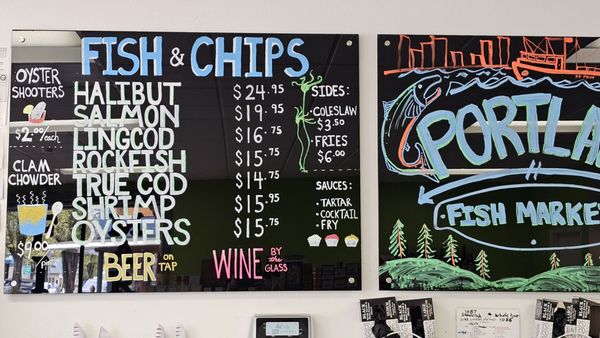 FISH & CHIPS
OYSTER
SHOOTERS
$2.00/each
CLAM
CHOWDER
$6.00
HALIBUT $24.95
SALMON $19.95
LINGCOD $16.75
ROCKFISH $15.75
TRUE COD $14.75
SHRIMP $15.95
OYSTERS $15.75
BEER ON TAP
WINE BY the GLASS
SIDES:
COLESLAW
$3.50
FRIES
$6.00
SAUCES:
• TARTAR
• COCKTAIL
• FRY
PORTLA
FISH MARKE